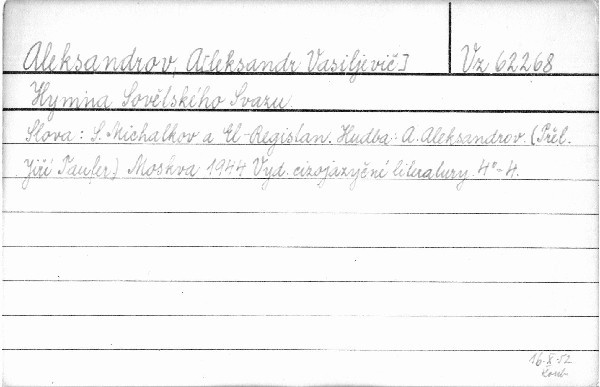 Aleksandrov, A[leksandr Vasiljevič] Vz 62268
Hymna Sovětského Svazu.
Slova: S. Michalkov a El-Registan. Hudba: A. Aleksandrov. (Přel.
Jiří Taufer.) Moskva 1944 Vyd. cizojazyčné literatury. 4°-4.
16-X-52